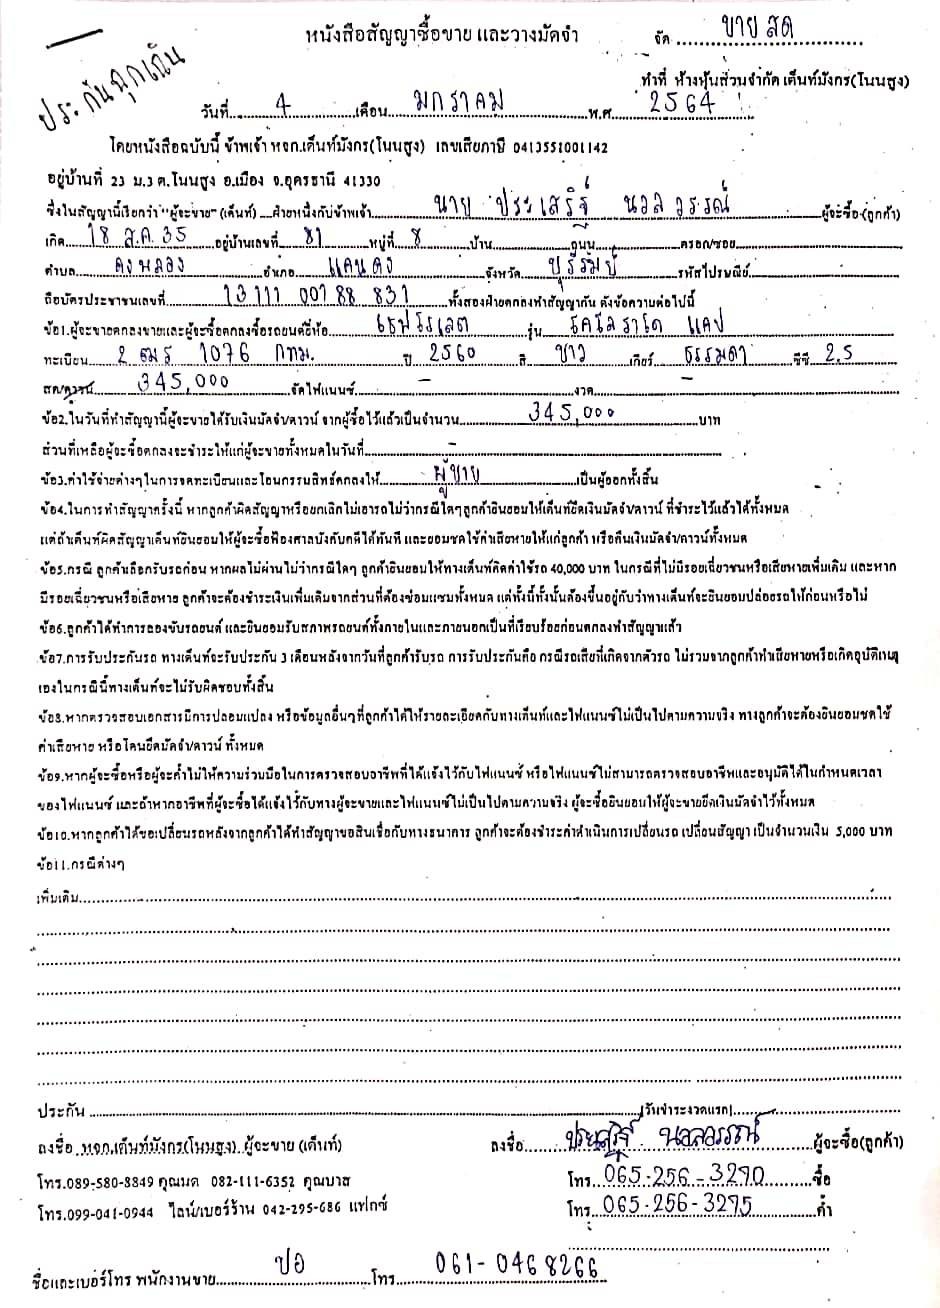 หนังสือสัญญาซื้อขาย และวางมัดจำ
จัด ขายสด
ประกันฉุกเฉิน
ทำที่ ห้างหุ้นส่วนจำกัด เต็นท์มังกร(โนนสูง)
วันที่ 4 เดือน มกราคม พ.ศ. 2564
โดยหนังสือฉบับนี้ ข้าพเจ้า หจก.เต็นท์มังกร(โนนสูง) เลขเสียภาษี 0413551001142
อยู่บ้านที่ 23 ม.3 ต.โนนสูง อ.เมือง จ.อุดรธานี 41330
ซึ่งในสัญญานี้เรียกว่า "ผู้จะขาย" (เต็นท์) ฝ่ายหนึ่งกับข้าพเจ้า นาย ประเสริฐ นวลวรรณ์ ผู้จะซื้อ(ลูกค้า)
เกิด 18 ส.ค. 35 อยู่บ้านเลขที่ 81 หมู่ที่ 8 บ้าน ถนน ตรอก/ซอย
ตำบล ดงพลอง อำเภอ แคนดง จังหวัด บุรีรัมย์ รหัสไปรษณีย์
ถือบัตรประชาชนเลขที่ 13111 00188 831 ทั้งสองฝ่ายตกลงทำสัญญากัน ดังข้อความต่อไปนี้
ข้อ1.ผู้จะขายตกลงขายและผู้จะซื้อตกลงซื้อรถยนต์ยี่ห้อ เชฟโรเลต รุ่น โคโลราโด แคป
ทะเบียน 2 ฒร 1076 กทม. ปี 2560 สี ขาว เกียร์ ธรรมดา ซีซี 2.5
สด/ดาวน์ 345,000 จัดไฟแนนซ์ - งวด -
ข้อ2.ในวันที่ทำสัญญานี้ผู้จะขายได้รับเงินมัดจำ/ดาวน์ จากผู้ซื้อไว้แล้วเป็นจำนวน 345,000 บาท
ส่วนที่เหลือผู้จะซื้อตกลงจะชำระให้แก่ผู้จะขายทั้งหมดในวันที่ -
ข้อ3.ค่าใช้จ่ายต่างๆในการจดทะเบียนและโอนกรรมสิทธิ์ตกลงให้ ผู้ขาย เป็นผู้ออกทั้งสิ้น
ข้อ4.ในการทำสัญญาครั้งนี้ หากลูกค้าผิดสัญญาหรือยกเลิกไม่เอารถไม่ว่ากรณีใดๆลูกค้ายินยอมให้เต็นท์ยึดเงินมัดจำ/ดาวน์ ที่ชำระไว้แล้วได้ทั้งหมด
แต่ถ้าเต็นท์ผิดสัญญาเต็นท์ยินยอมให้ผู้จะซื้อฟ้องศาลบังคับคดีได้ทันที และยอมชดใช้ค่าเสียหายให้แก่ลูกค้า หรือคืนเงินมัดจำ/ดาวน์ทั้งหมด
ข้อ5.กรณี ลูกค้าเลือกรับรถก่อน หากผลไม่ผ่านไม่ว่ากรณีใดๆ ลูกค้ายินยอมให้ทางเต็นท์คิดค่าใช้รถ 40,000 บาท ในกรณีที่ไม่มีรอยเฉี่ยวชนหรือเสียหายเพิ่มเติม และหาก
มีรอยเฉี่ยวชนหรือเสียหาย ลูกค้าจะต้องชำระเงินเพิ่มเติมจากส่วนที่ต้องซ่อมแซมทั้งหมด แต่ทั้งนี้ทั้งนั้นต้องขึ้นอยู่กับว่าทางเต็นท์จะยินยอมปล่อยรถให้ก่อนหรือไม่
ข้อ6.ลูกค้าได้ทำการลองขับรถยนต์ และยินยอมรับสภาพรถยนต์ทั้งภายในและภายนอกเป็นที่เรียบร้อยก่อนตกลงทำสัญญาแล้ว
ข้อ7.การรับประกันรถ ทางเต็นท์จะรับประกัน 3 เดือนหลังจากวันที่ลูกค้ารับรถ การรับประกันคือ กรณีรถเสียที่เกิดจากตัวรถ ไม่รวมจากลูกค้าทำเสียหายหรือเกิดอุบัติเหตุ
เองในกรณีนี้ทางเต็นท์จะไม่รับผิดชอบทั้งสิ้น
ข้อ8.หากตรวจสอบเอกสารมีการปลอมแปลง หรือข้อมูลอื่นๆที่ลูกค้าได้ให้รายละเอียดกับทางเต็นท์และไฟแนนซ์ไม่เป็นไปตามความจริง ทางลูกค้าจะต้องยินยอมชดใช้
ค่าเสียหาย หรือโดนยึดมัดจำ/ดาวน์ ทั้งหมด
ข้อ9.หากผู้จะซื้อหรือผู้จะค้ำไม่ให้ความร่วมมือในการตรวจสอบอาชีพที่ได้แจ้งไว้กับไฟแนนซ์ หรือไฟแนนซ์ไม่สามารถตรวจสอบอาชีพและอนุมัติได้ในกำหนดเวลา
ของไฟแนนซ์ และถ้าหากอาชีพที่ผู้จะซื้อได้แจ้งไว้กับทางผู้จะขายและไฟแนนซ์ไม่เป็นไปตามความจริง ผู้จะซื้อยินยอมให้ผู้จะขายยึดเงินมัดจำไว้ทั้งหมด
ข้อ10.หากลูกค้าได้ขอเปลี่ยนรถหลังจากลูกค้าได้ทำสัญญาขอสินเชื่อกับทางธนาคาร ลูกค้าจะต้องชำระค่าดำเนินการเปลี่ยนรถ เปลี่ยนสัญญา เป็นจำนวนเงิน 5,000 บาท
ข้อ11.กรณีต่างๆ
เพิ่มเติม
ประกัน (วันชำระงวดแรก)
ลงชื่อ หจก.เต็นท์มังกร(โนนสูง) ผู้จะขาย (เต็นท์) ลงชื่อ ประเสริฐ นวลวรรณ์ ผู้จะซื้อ(ลูกค้า)
โทร.089-580-8849 คุณมด 082-111-6352 คุณบาส โทร. 065-256-3290 ซื้อ
โทร.099-041-0944 ไลน์/เบอร์ร้าน 042-295-686 แฟกซ์ โทร. 065-256-3295 ค้ำ
ชื่อและเบอร์โทร พนักงานขาย ปอ โทร 061-0468266